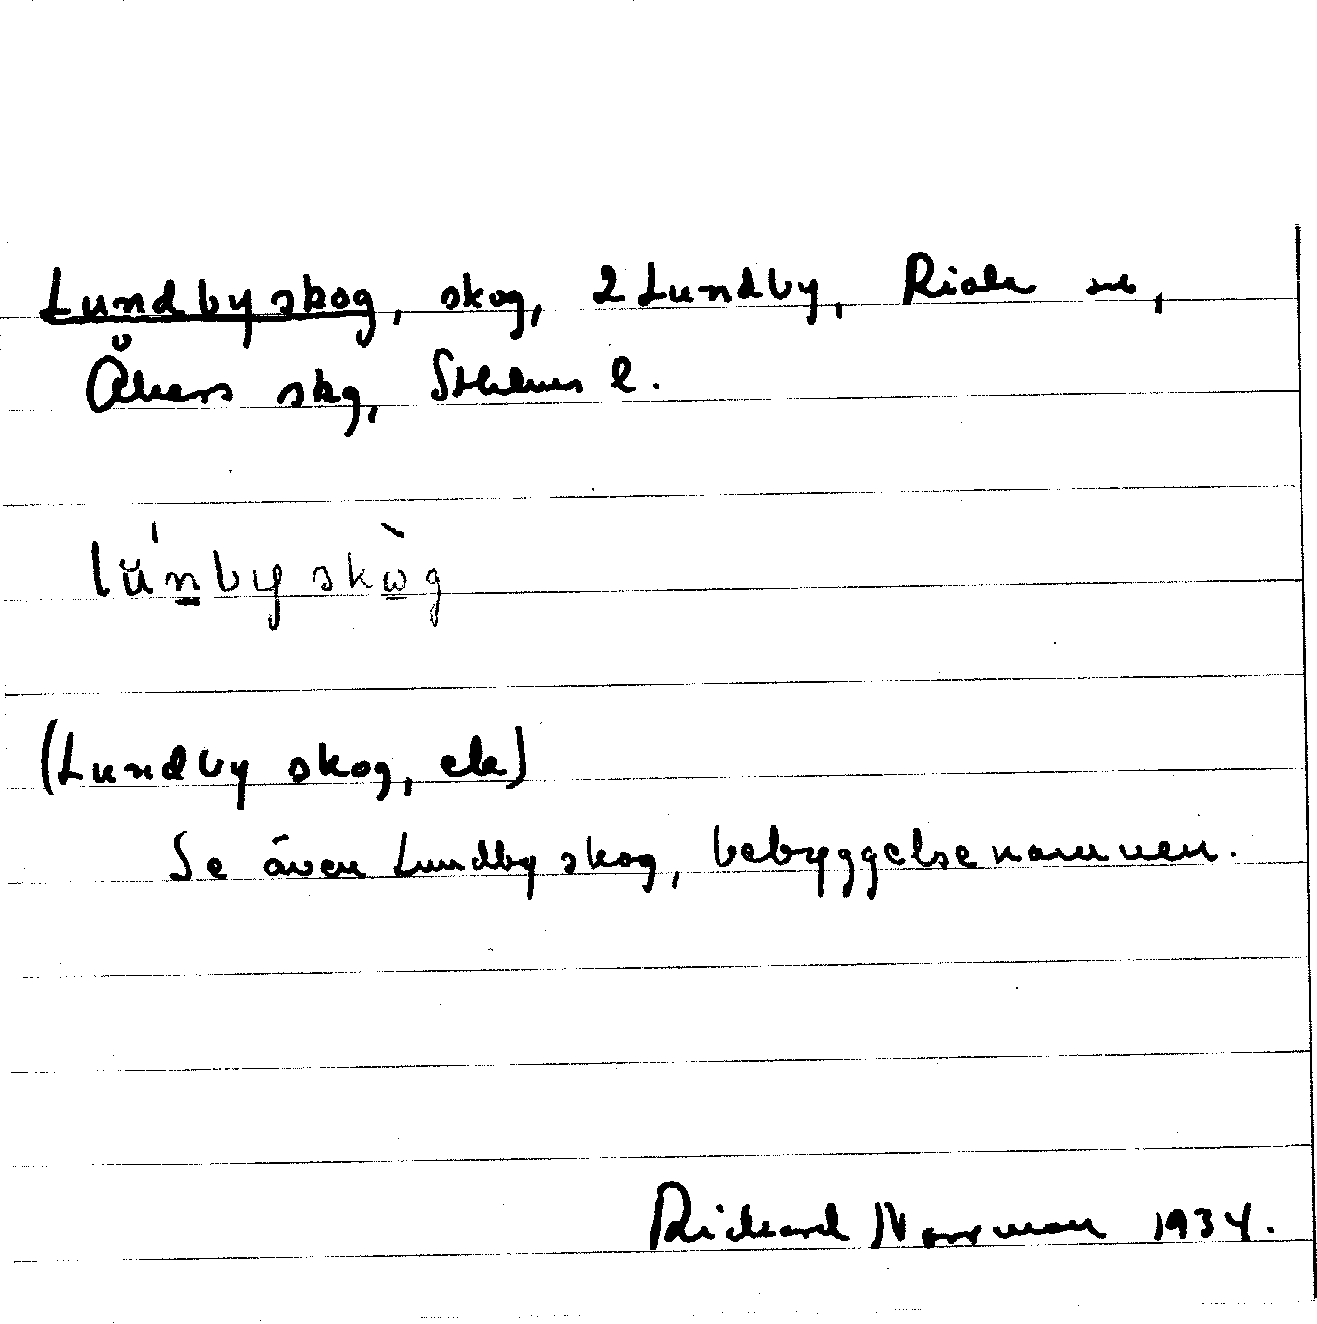 Lundbyskog, skog, 2 Lundby, Riala sn,
Åkers skg, Sthlms l.
lŭ́nbyskὼg
(Lundby skog, ek)
Se även Lundby skog, bebyggelsenamnen.
Rickard Norrman 1934.